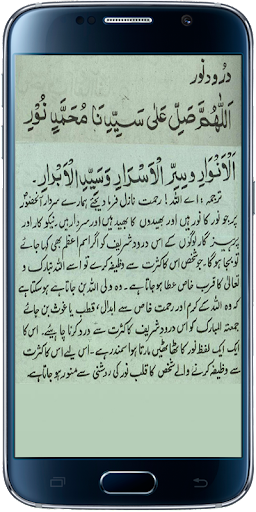 درود نور
اَللّٰهُمَّ صَلِّ عَلٰى سَيِّدِنَا مُحَمَّدٍ نُوْرِ
الْاَنْوَارِ وَسِرِّ الْاَسْرَارِ وَسَيِّدِ الْاَبْرَارِ۔
ترجمہ: اے اللہ! رحمت نازل فرما دیجئے ہمارے سردار آنحضور
پر جو نور کا نور ہیں اور بھیدوں کا بھید ہیں اور سردار ہیں۔ نیکو کار اور
پرہیز گار لوگوں کے اس درود شریف کو اگر اسم اعظم بھی کہا جائے
تو بیجا ہوگا۔ جو شخص اس کا کثرت سے وظیفہ کرے تو اسے اللہ تبارک و
تعالیٰ کا قرب خاص عطا ہو جاتا ہے۔ وہ ولی اللہ بن جاتا ہے ہو سکتا ہے
کہ وہ اللہ کے کرم اور رحمت خاص سے ابدل، قطب یا غوث بن جائے
جمعتہ المبارک کو اس درود شریف کا کثرت سے ورد کرنا چاہیئے۔ اس کا
ایک ایک لفظ نور کا ٹھاٹھیں مارتا ہوا سمندر ہے۔ اس لیے اس کا کثرت
سے وظیفہ کرنے والے شخص کا قلب نور کی روشنی سے منور ہو جاتا ہے۔